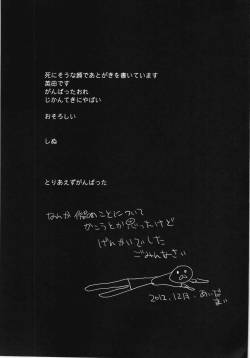 死にそうな顔であとがきを書いています
英田です
がんばったおれ
じかんてきにやばい
おそろしい
しぬ
とりあえずがんばった
なんか
ことについて
かこうとか思ったけど
げんかいでした
ごみんなさい
2012.12月.